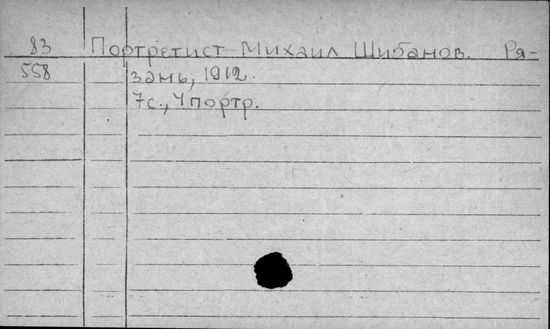 83 Портретист Михаил Шибанов. Ря-
558 зань, 1912.
7с., 4 портр.